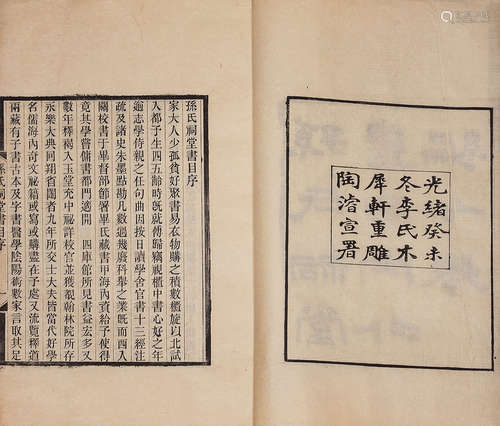 光緒癸未
冬李氏木
犀軒重雕
陶濬宣署
孫氏祠堂書目序
家大人少孤貧好聚書易衣物購之積數櫃旋以北試
人都予生四五齡時旣就傅歸竊視櫃中書心好之年
逾志學侍親之任句曲因按日讀學舍官書十三經注
疏及諸史朱墨點勘凡數過幾廢科舉之業旣而西入
關校書于畢督部節署畢氏藏書甲海內資給予使得
竟其學嘗傭書都門適開　四庫館所見書益宏多又
數年釋褐入玉堂充中祕詳校官並獲覩翰林院所存
永樂大典回翔省闥者九年所交士大夫皆當代好學
名儒海內奇文祕籍或寫或購盡在予處又流覽釋道
兩藏有子書古本及字書醫學陰陽術數家言取其足
孫氏祠堂書目序